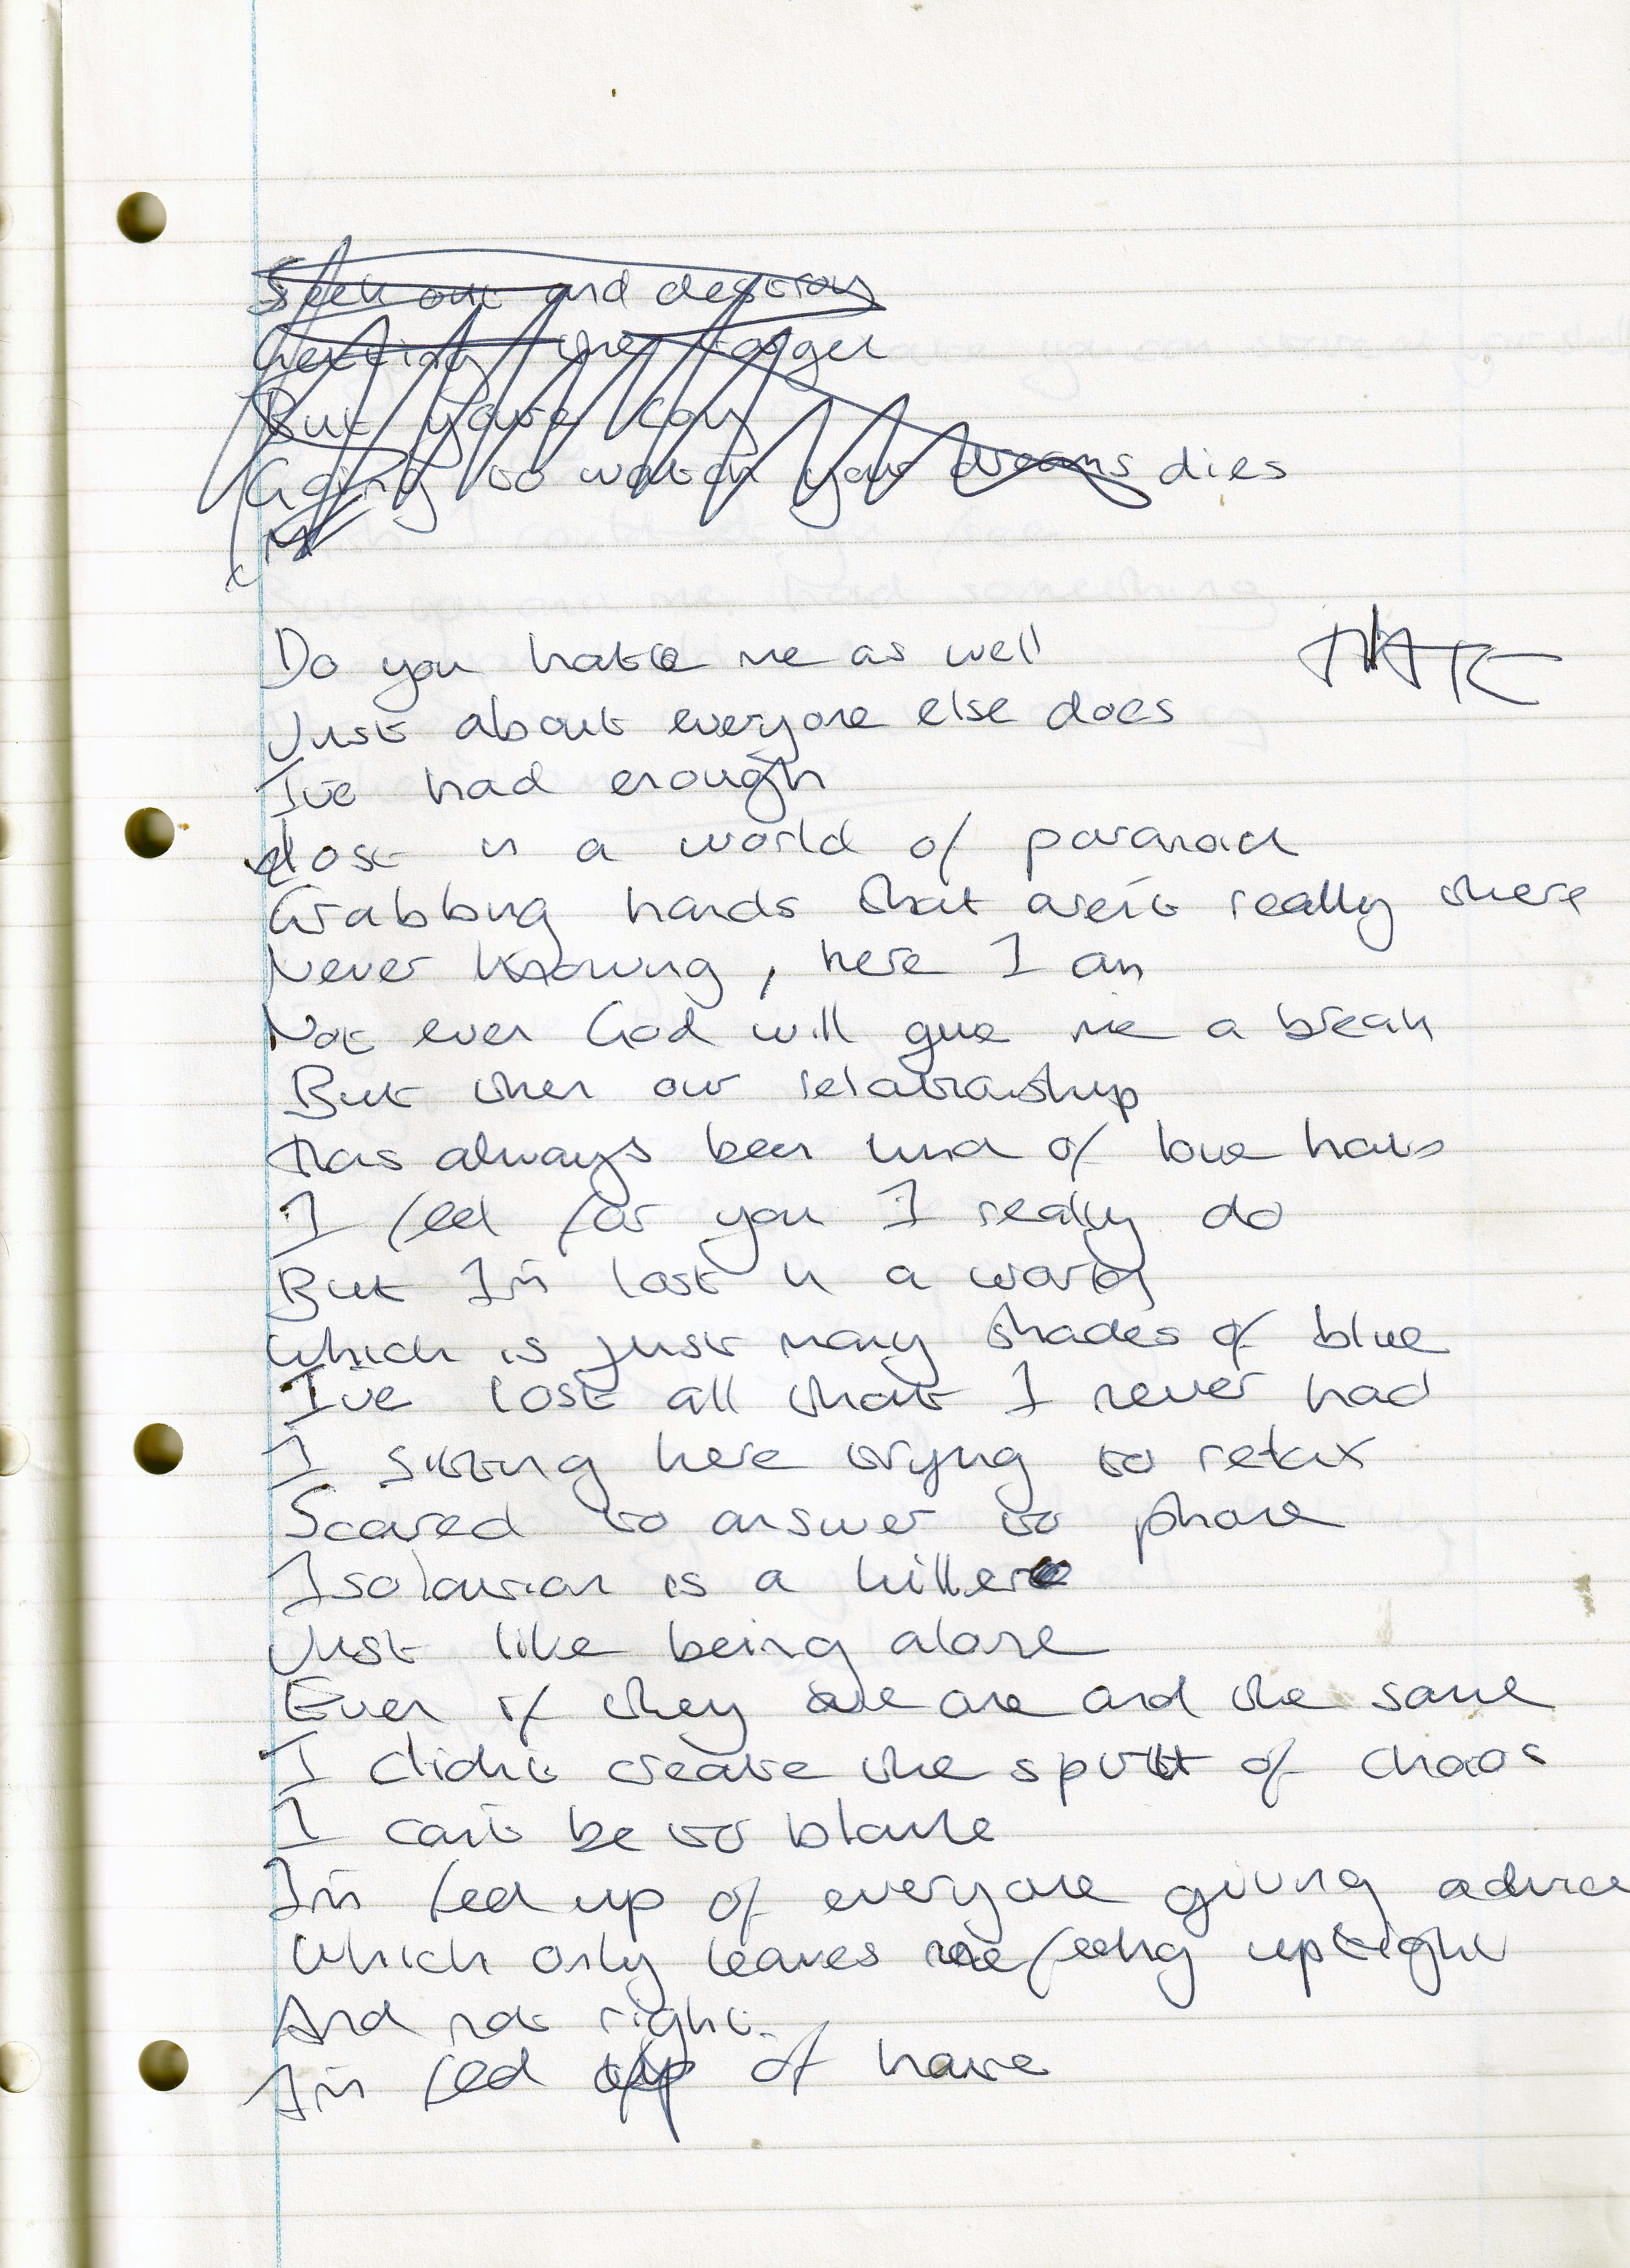 Seek out and destroy
the
But
Going to watch your dreams dies
Do you hate me as well
Just about everyone else does
I've had enough
Lost in a world of paranoia
Grabbing hands that aren't really there
Never knowing, here I am
Not even God will give me a break
But then our relationship
Has always been kind of love hate
I feel for you I really do
But I'm lost in a world
Which is just many shades of blue
I've lost all that I never had
I sitting here trying to relax
Scared to answer to phone
Isolation is a killer
Just like being alone
Even if they are one and the same
I didn't create the spirit of chaos
I can't be to blame
I'm fed up of everyone giving advice
Which only leaves me feeling uptight
And not right.
I'm fed up of hate